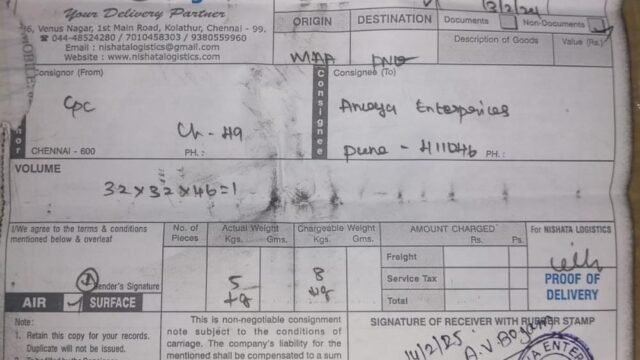 Your Delivery Partner
Venus Nagar, 1st Main Road, Kolathur, Chennai - 99.
☎ 044-48524280 / 7010458303 / 9380559960
Email : nishatalogistics@gmail.com
Website : www.nishatalogistics.com
ORIGIN DESTINATION Documents Non-Documents
MAA PNQ
Description of Goods Value (Rs.)
Consignor (From) Consignee Consignee (To)
CPC
Ch - 49
CHENNAI - 600 PH. :
Enterprices
Pune - 411046 PH. :
VOLUME
32 x 32 x 46 = 1
I/We agree to the terms & conditions
mentioned below & overleaf
No. of Pieces Actual Weight Kgs. Gms. Chargeable Weight Kgs. Gms.
AMOUNT CHARGED Rs. Ps.
For NISHATA LOGISTICS
1 5 kg 8 kg
Freight
Service Tax
Total
Sender's Signature
AIR SURFACE
PROOF OF
DELIVERY
Note :
1. Retain this copy for your records.
Duplicate will not be issued.
This is non-negotiable consignment
note subject to the conditions of
carriage. The company's liability for
the mentioned shall be compensated to a sum
SIGNATURE OF RECEIVER WITH RUBBER STAMP
14/2/25